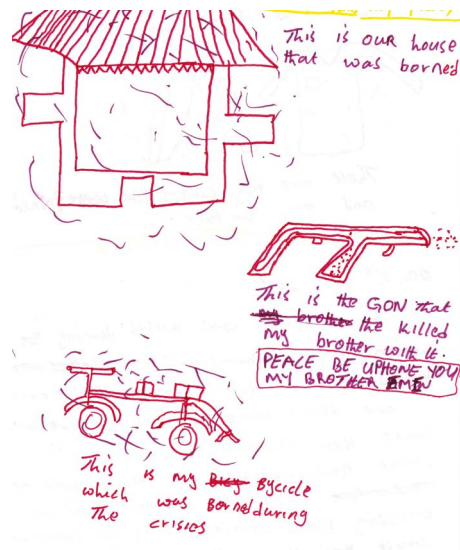 This is our house
that was borned
This is the GON that
my brother the killed
my brother with it.
PEACE BE UPHONE YOU
MY BROTHER AMEN
This is my Bicy Bycicle
which was borned during
The crisies